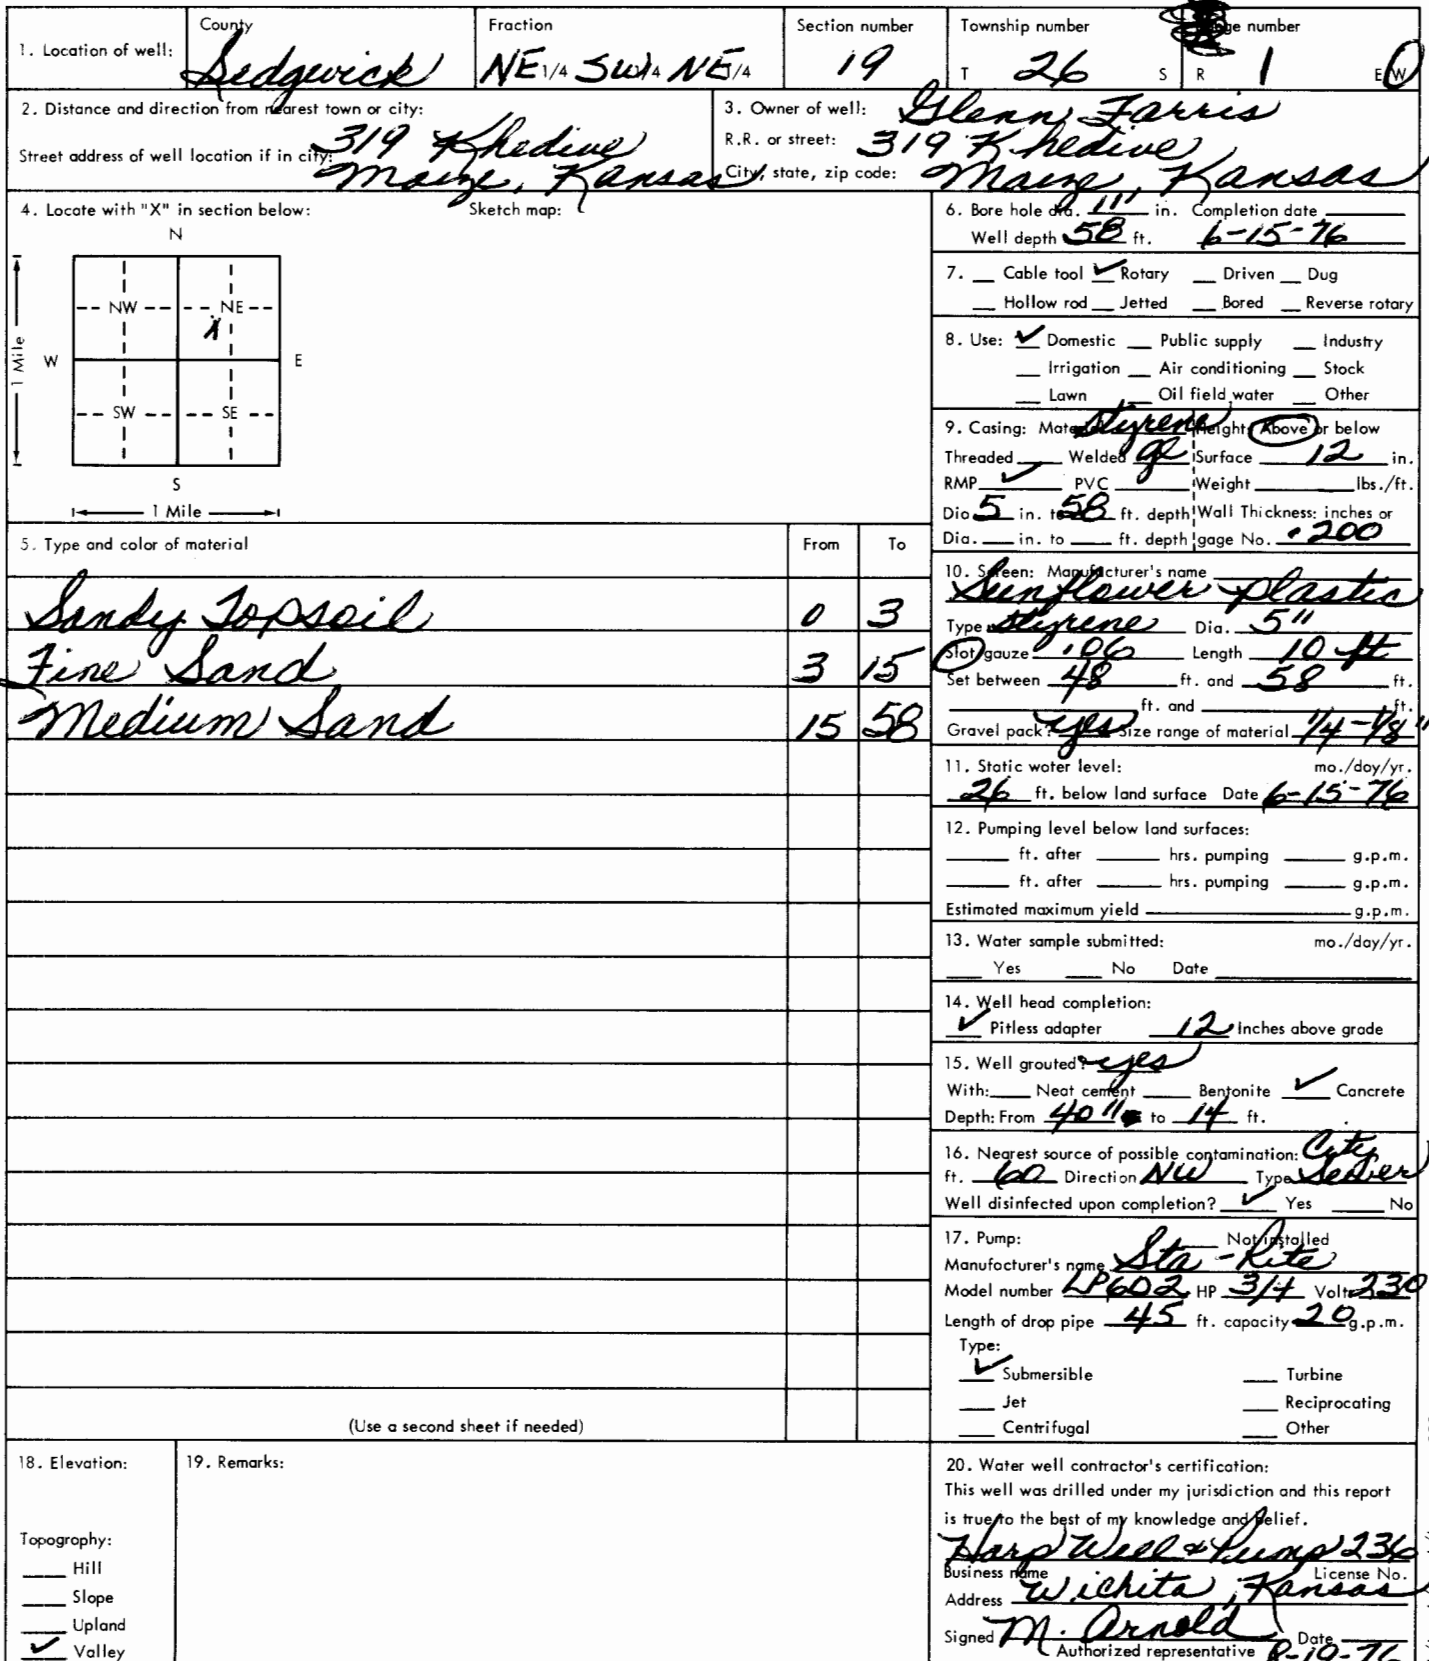 1. Location of well: County Sedgwick Fraction NE 1/4 SW 1/4 NE 1/4 Section number 19 Township number T 26 S number R 1 E W
2. Distance and direction from nearest town or city:
Street address of well location if in city: 319 Khedive
Maize, Kansas
3. Owner of well: Glenn Farris
R.R. or street: 319 Khedive
City, state, zip code: Maize, Kansas
4. Locate with "X" in section below: Sketch map:
N
NW NE
X
W E
1 Mile
SW SE
S
1 Mile
5. Type and color of material From To
Sandy Topsoil 0 3
Fine Sand 3 15
Medium Sand 15 58
(Use a second sheet if needed)
6. Bore hole dia. 11" in. Completion date
Well depth 58 ft. 6-15-76
7. Cable tool ✓ Rotary Driven Dug
Hollow rod Jetted Bored Reverse rotary
8. Use: ✓ Domestic Public supply Industry
Irrigation Air conditioning Stock
Lawn Oil field water Other
9. Casing: Material styrene Height: Above or below
Threaded Welded Surface 12 in.
RMP ✓ PVC Weight lbs./ft.
Dia 5 in. to 58 ft. depth Wall Thickness: inches or
Dia. in. to ft. depth gage No. .200
10. Screen: Manufacturer's name
Sunflower Plastic
Type styrene Dia. 5"
Slot/gauze .06 Length 10 ft
Set between 48 ft. and 58 ft.
ft. and ft.
Gravel pack? yes Size range of material 1/4-1/8"
11. Static water level: mo./day/yr.
26 ft. below land surface Date 6-15-76
12. Pumping level below land surfaces:
ft. after hrs. pumping g.p.m.
ft. after hrs. pumping g.p.m.
Estimated maximum yield g.p.m.
13. Water sample submitted: mo./day/yr.
Yes No Date
14. Well head completion:
✓ Pitless adapter 12 Inches above grade
15. Well grouted? yes
With: Neat cement Bentonite ✓ Concrete
Depth: From 40" to 14 ft.
16. Nearest source of possible contamination: City
ft. 60 Direction NW Type Sewer
Well disinfected upon completion? ✓ Yes No
17. Pump: Not installed
Manufacturer's name Sta-Rite
Model number LP602 HP 3/4 Volts 230
Length of drop pipe 45 ft. capacity 20 g.p.m.
Type:
✓ Submersible Turbine
Jet Reciprocating
Centrifugal Other
18. Elevation:
Topography:
Hill
Slope
Upland
✓ Valley
19. Remarks:
20. Water well contractor's certification:
This well was drilled under my jurisdiction and this report
is true to the best of my knowledge and belief.
Harp Well & Pump 236
Business name License No.
Address Wichita, Kansas
Signed M. Arnold Date
Authorized representative 8-10-76